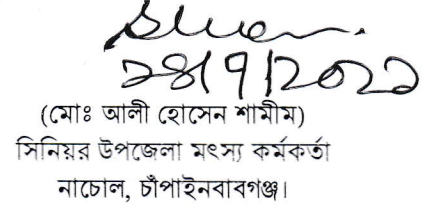 ২৪/৭/২০২১
(মোঃ আলী হোসেন শামীম)
সিনিয়র উপজেলা মৎস্য কর্মকর্তা
নাচোল, চাঁপাইনবাবগঞ্জ।